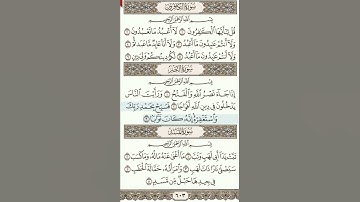 سورة الكافرون
بسم الله الرحمن الرحيم
قل يأيها الكفرون ١ لا أعبد ما تعبدون ٢
ولا أنتم عبدون ما أعبد ٣ ولا أنا عابد ما عبدتم ٤
ولا أنتم عبدون ما أعبد ٥ لكم دينكم ولي دين ٦
سورة النصر
بسم الله الرحمن الرحيم
إذا جاء نصر الله والفتح ١ ورأيت الناس
يدخلون في دين الله أفواجا ٢ فسبح بحمد ربك
واستغفره إنه كان توابا ٣
سورة المسد
بسم الله الرحمن الرحيم
تبت يدا أبي لهب وتب ١ ما أغنى عنه ماله وما كسب ٢
سيصلى نارا ذات لهب ٣ وامرأته حمالة الحطب ٤
في جيدها حبل من مسد ٥
٦٠٣